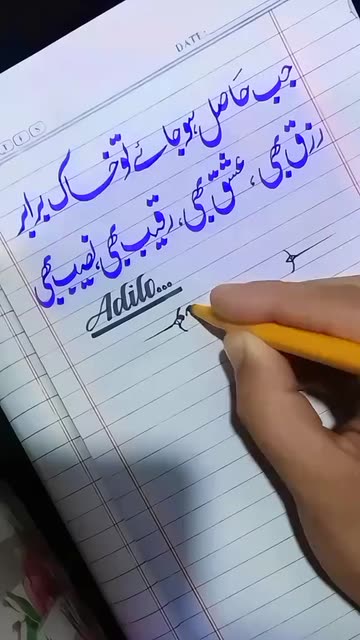 DATE:
جب حاصل ہو جائے تو خاک برابر
رزق بھی، عشق بھی، رقیب بھی، نصیب بھی
Adilo...